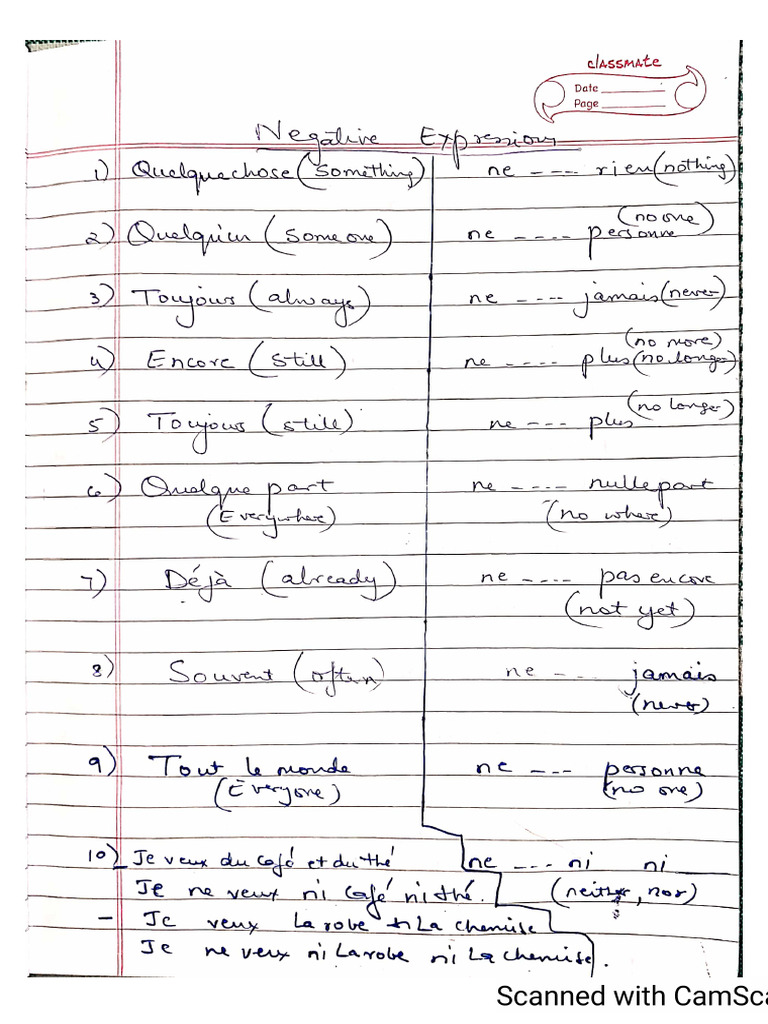 classmate
Date
Page
Negative Expressions
1) Quelquechose (Something) ne ---- rien (nothing)
(no one)
2) Quelqu'un (Someone) ne ---- personne
3) Toujours (always) ne ---- jamais (never)
(no more)
4) Encore (still) ne ---- plus (no longer)
(no longer)
5) Toujours (still) ne --- plus
6) Quelque part ne ---- nullepart
(Everywhere) (no where)
7) Déjà (already) ne ---- pas encore
(not yet)
8) Souvent (often) ne --- jamais
(never)
9) Tout le monde ne --- personne
(Everyone) (no one)
10) Je veux du café et du thé ne --- ni ni
Je ne veux ni café ni thé. (neither, nor)
- Je veux la robe et La chemise
Je ne veux ni La robe ni La chemise.
Scanned with CamSca